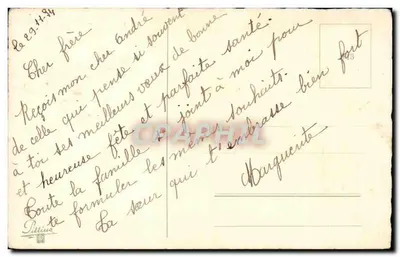 le 29.11.34
Cher frère
Reçois mon cher andré
de celle qui pense si souvent
à toi ses meilleurs vœux de bonne
et heureuse fête et parfaite santé.
Toute la famille se joint à moi pour
te formuler les mêmes souhaits.
Ta sœur qui t'embrasse bien fort
Marguerite
CPAPHIL.COM